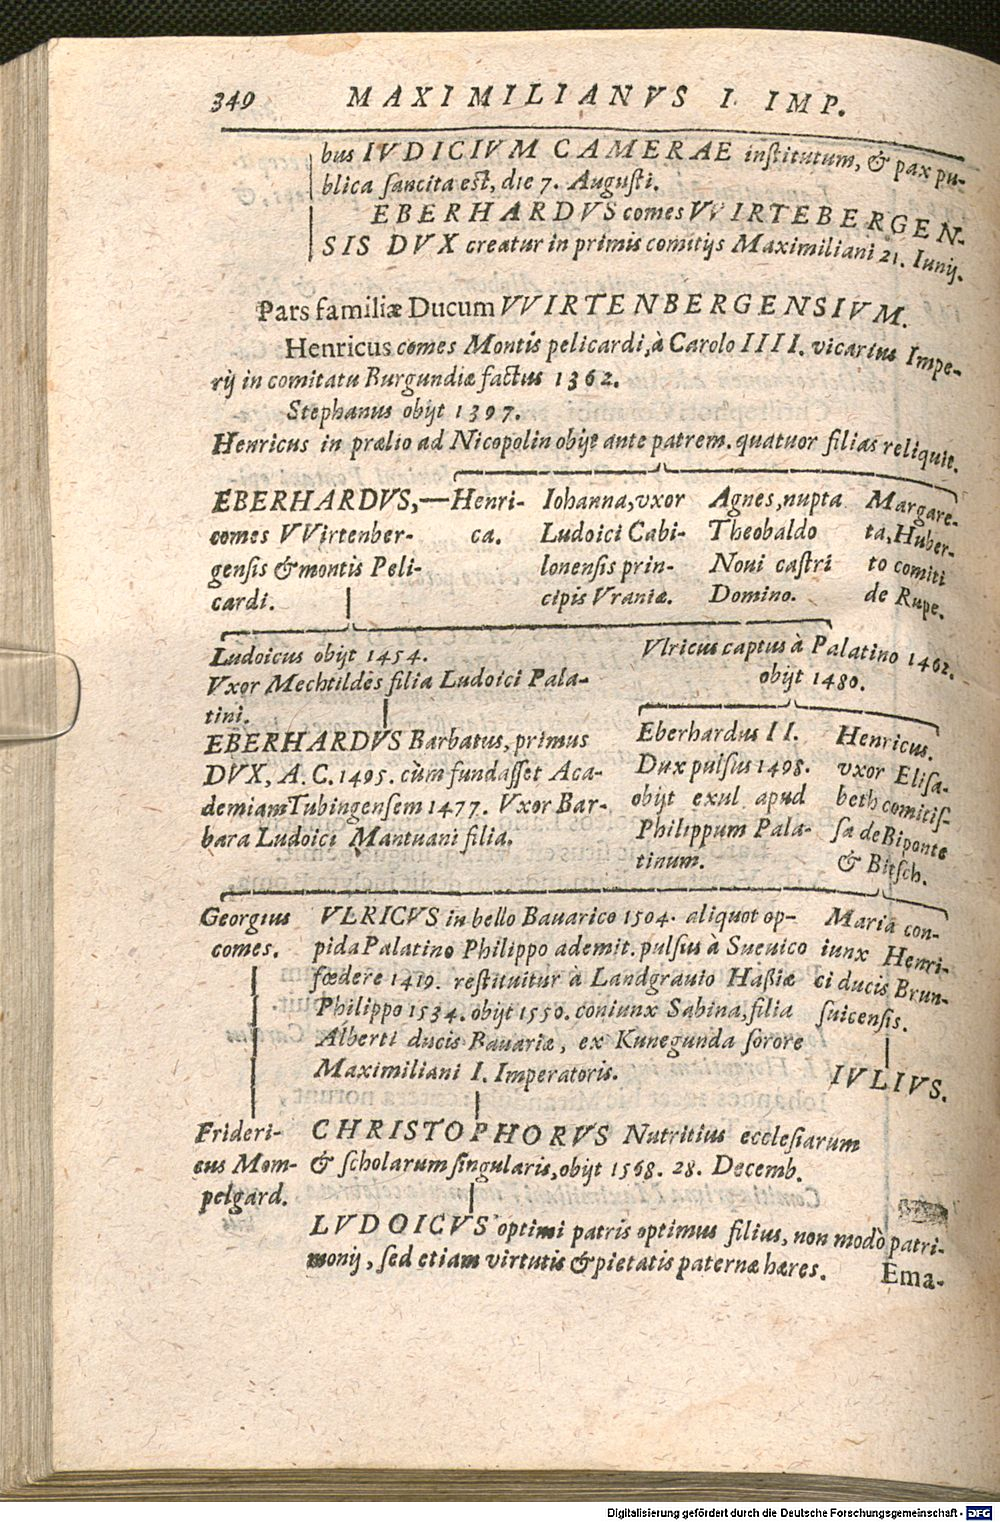 340 MAXIMILIANVS I. IMP.
bus IVDICIVM CAMERAE institutum, & pax pu-
blica sancita est, die 7. Augusti.
EBERHARDVS comes VVIRTEBERGEN-
SIS DVX creatur in primis comitijs Maximiliani 21. Iunij.
Pars familiæ Ducum VVIRTENBERGENSIVM.
Henricus comes Montis pelicardi, à Carolo IIII. vicarius Impe-
rij in comitatu Burgundiæ factus 1362.
Stephanus obijt 1397.
Henricus in prælio ad Nicopolin obijt ante patrem. quatuor filias reliquit.
EBERHARDVS,—Henri-
comes VVirtenber- ca.
gensis & montis Peli-
cardi.
Iohanna, vxor
Ludoici Cabi-
lonensis prin-
cipis Vraniæ.
Agnes, nupta
Theobaldo
Noui castri
Domino.
Margare-
ta, Huber-
to comiti
de Rupe.
Ludoicus obijt 1454.
Vxor Mechtildes filia Ludoici Pala-
tini.
Vlricus captus à Palatino 1462.
obijt 1480.
EBERHARDVS Barbatus, primus
DVX, A. C. 1495. cùm fundasset Aca-
demiam Tubingensem 1477. Vxor Bar-
bara Ludoici Mantuani filia.
Eberhardus II.
Dux pulsus 1498.
obijt exul apud
Philippum Pala-
tinum.
Henricus.
vxor Elisa-
beth comitis-
sa de Biponte
& Bitsch.
Georgius
comes.
VLRICVS in bello Bauarico 1504. aliquot op-
pida Palatino Philippo ademit. pulsus à Sueuico
fœdere 1419. restituitur à Landgrauio Haßiæ
Philippo 1534. obijt 1550. coniunx Sabina, filia
Alberti ducis Bauariæ, ex Kunegunda sorore
Maximiliani I. Imperatoris.
Maria con-
iunx Henri-
ci ducis Brun-
suicensis.
IVLIVS.
Frideri-
cus Mom-
pelgard.
CHRISTOPHORVS Nutritius ecclesiarum
& scholarum singularis, obijt 1568. 28. Decemb.
LVDOICVS optimi patris optimus filius, non modò patri-
monij, sed etiam virtutis & pietatis paternæ hæres.
Ema-
Digitalisierung gefördert durch die Deutsche Forschungsgemeinschaft - DFG